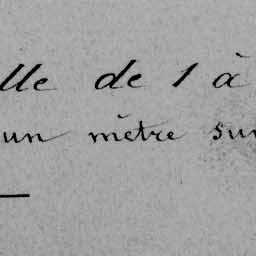 lle de 1 à
un mètre sur